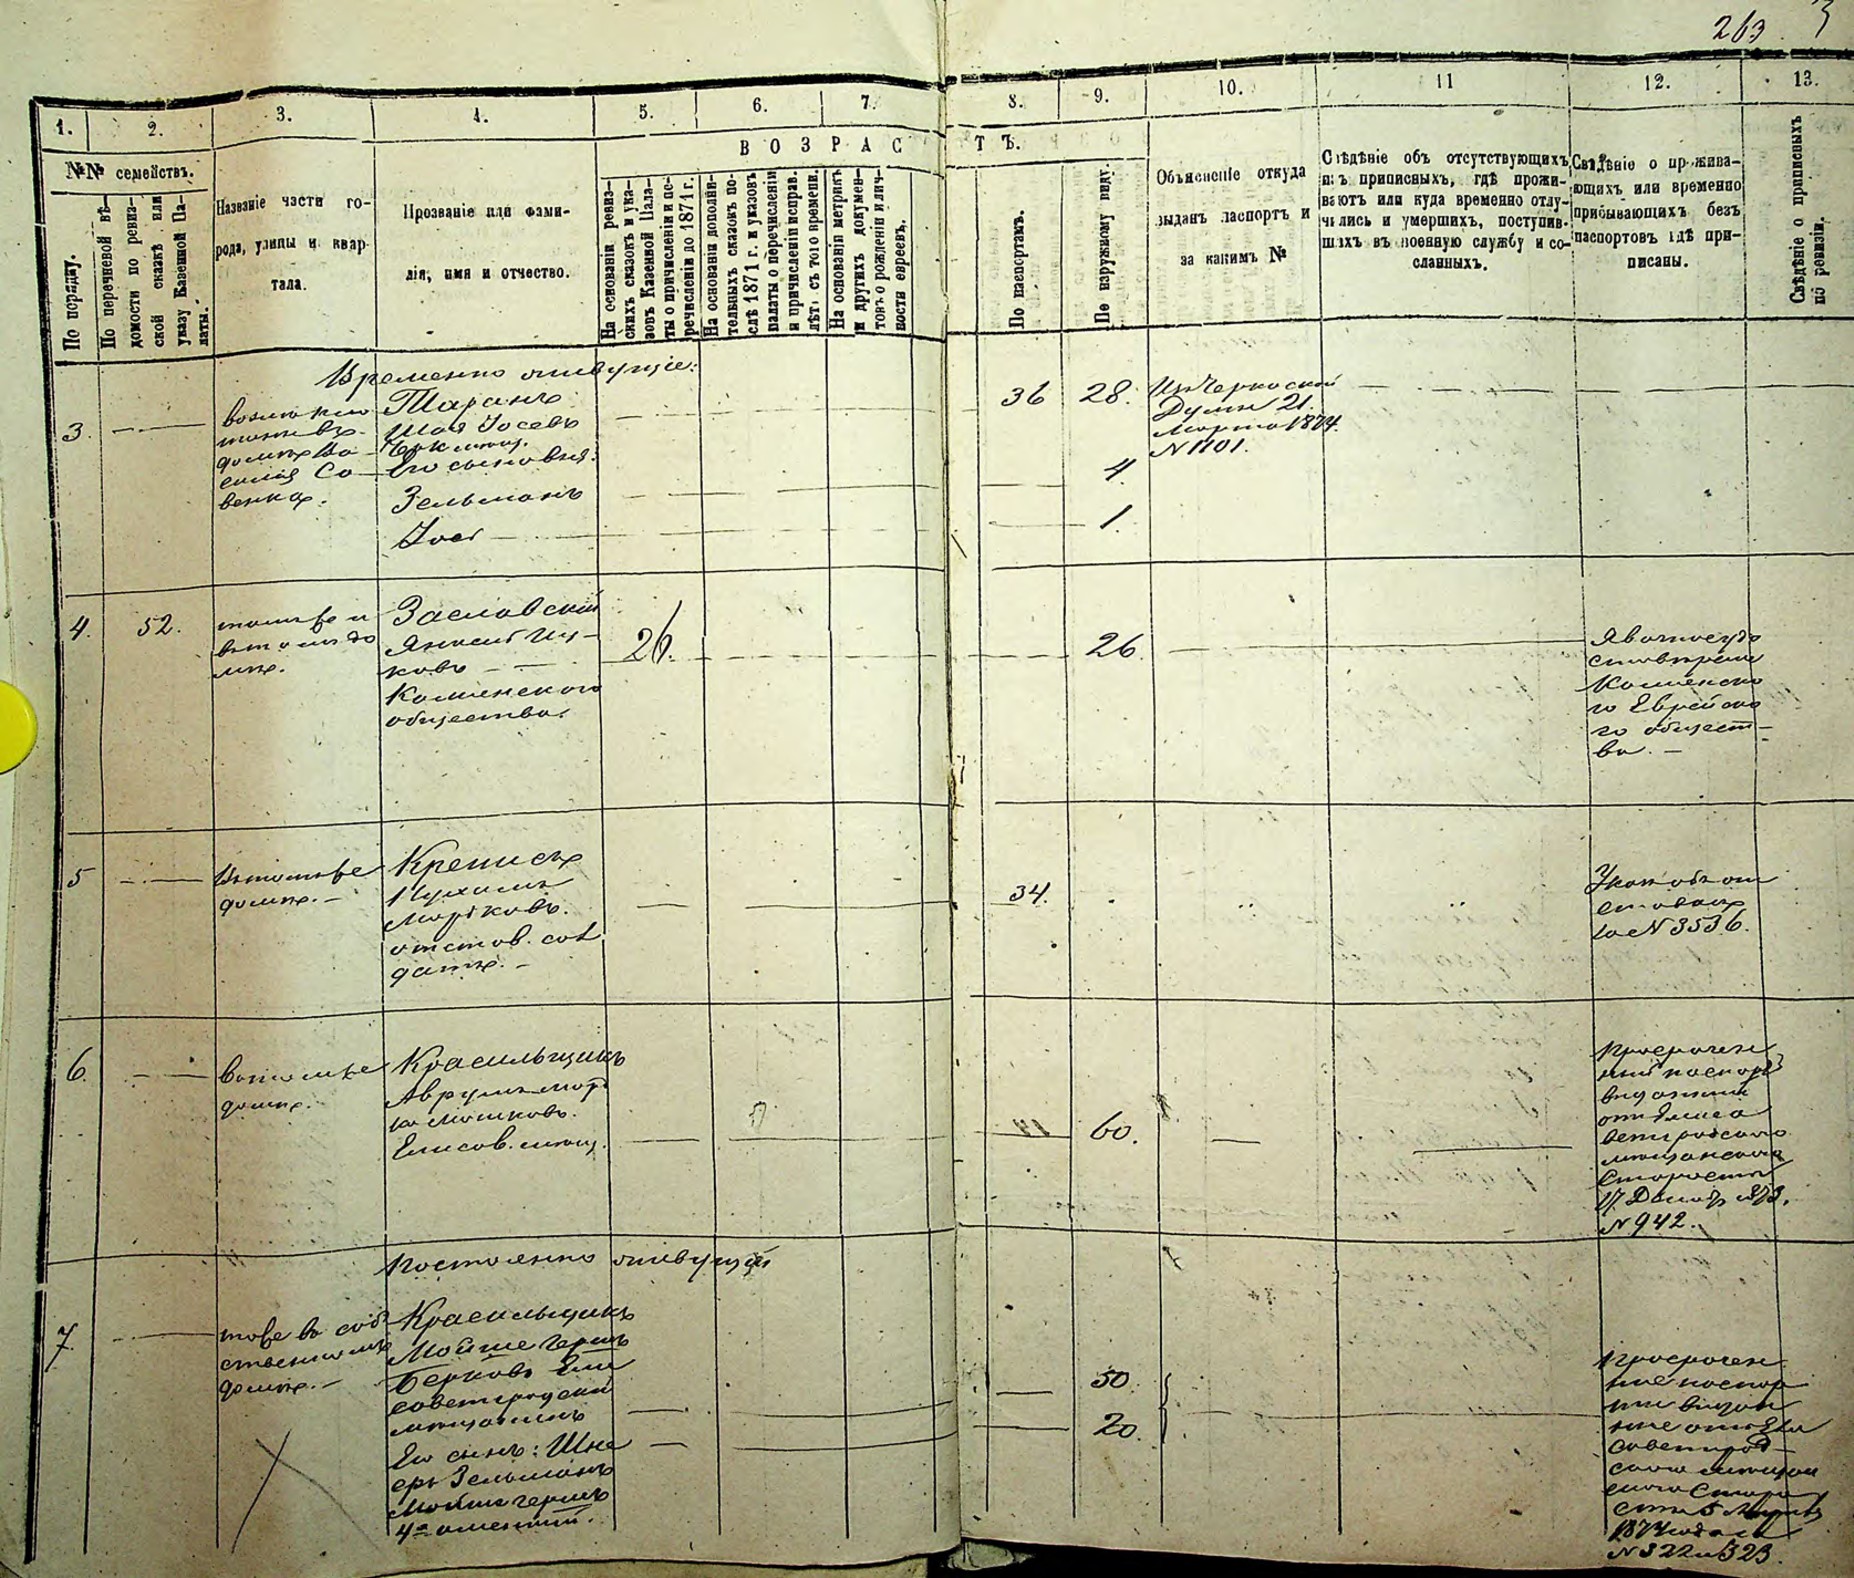 263
1.
2.
3.
4.
5.
6.
7.
8.
9.
10.
11
12.
13.
№№ семействъ.
По порядку.
По перечневой вѣ-
домости по ревиз-
ской сказкѣ или
указу Казенной Па-
латы.
Названіе части го-
рода, улицы и квар-
тала.
Прозваніе или фами-
лія, имя и отчество.
ВОЗРАС
ТЪ.
На основаніи ревиз-
скихъ сказокъ и ука-
зовъ Казенной Пала-
ты о причисленіи и пе-
речисленіи до 1871 г.
На основаніи дополни-
тельныхъ сказокъ по-
слѣ 1871 г. и указовъ
палаты о перечисленіи
и причисленіи исправ.
лѣтъ съ того времени.
На основаніи метрикъ
и другихъ докумен-
товъ о рожденіи и лич-
ности евреевъ.
По паспортамъ.
По наружному виду.
Объясненіе откуда
выданъ паспортъ и
за какимъ №
Свѣдѣніе объ отсутствующихъ
изъ приписныхъ, гдѣ прожи-
ваютъ или куда временно отлу-
чились и умершихъ, поступив-
шихъ въ военную службу и со-
сланныхъ.
Свѣдѣніе о прожива-
ющихъ или временно
прибывающихъ безъ
паспортовъ гдѣ при-
писаны.
Свѣдѣніе о приписныхъ
по ревизіи.
Временно живущіе:
3.
домѣ Ва-
силія Со-
венка.
Таранъ
Шая Іосевъ
Его сыновья:
Зельманъ
Іось
36
28.
4
1.
Изъ Черкаской
Думы 21.
Марта 1874.
N 1101.
4.
52.
тамъ же и
въ томъ до
мѣ.
Заславскій
Янкель Иц-
ковъ
Каменского
общества.
26.
26.
Каменска
го Еврейска
го общест-
ва.
5
въ томъ же
домѣ.
Креписъ
Нухимъ
Морковъ.
отстав. сол
датъ.
34.
Указ объ от
ставкѣ
за N 3536.
6.
въ томъ же
домѣ.
Красильщикъ
Аврумъ Морт
ка Мошковъ.
Елисов. мѣщ.
60.
Просрочен
ный паспортъ
выданный
отъ Елиса
ветградского
мѣщанского
Старосты
17. Декабр 1873.
N 942.
Постоянно живущій
7.
тамже въ соб
ственномъ
домѣ.
Красильщикъ
Мойше Гершъ
Берковъ Ели
саветградскій
мѣщанинъ
Его сынъ: Шне
еръ Зельманъ
Мойше Гершъ
50.
20.
Просрочен
ные паспор
ты выдан
ные отъ Ели
саветград-
ского мѣщан
ского Старо
сты 5 Марта
1874 года за
N 322 и 323.